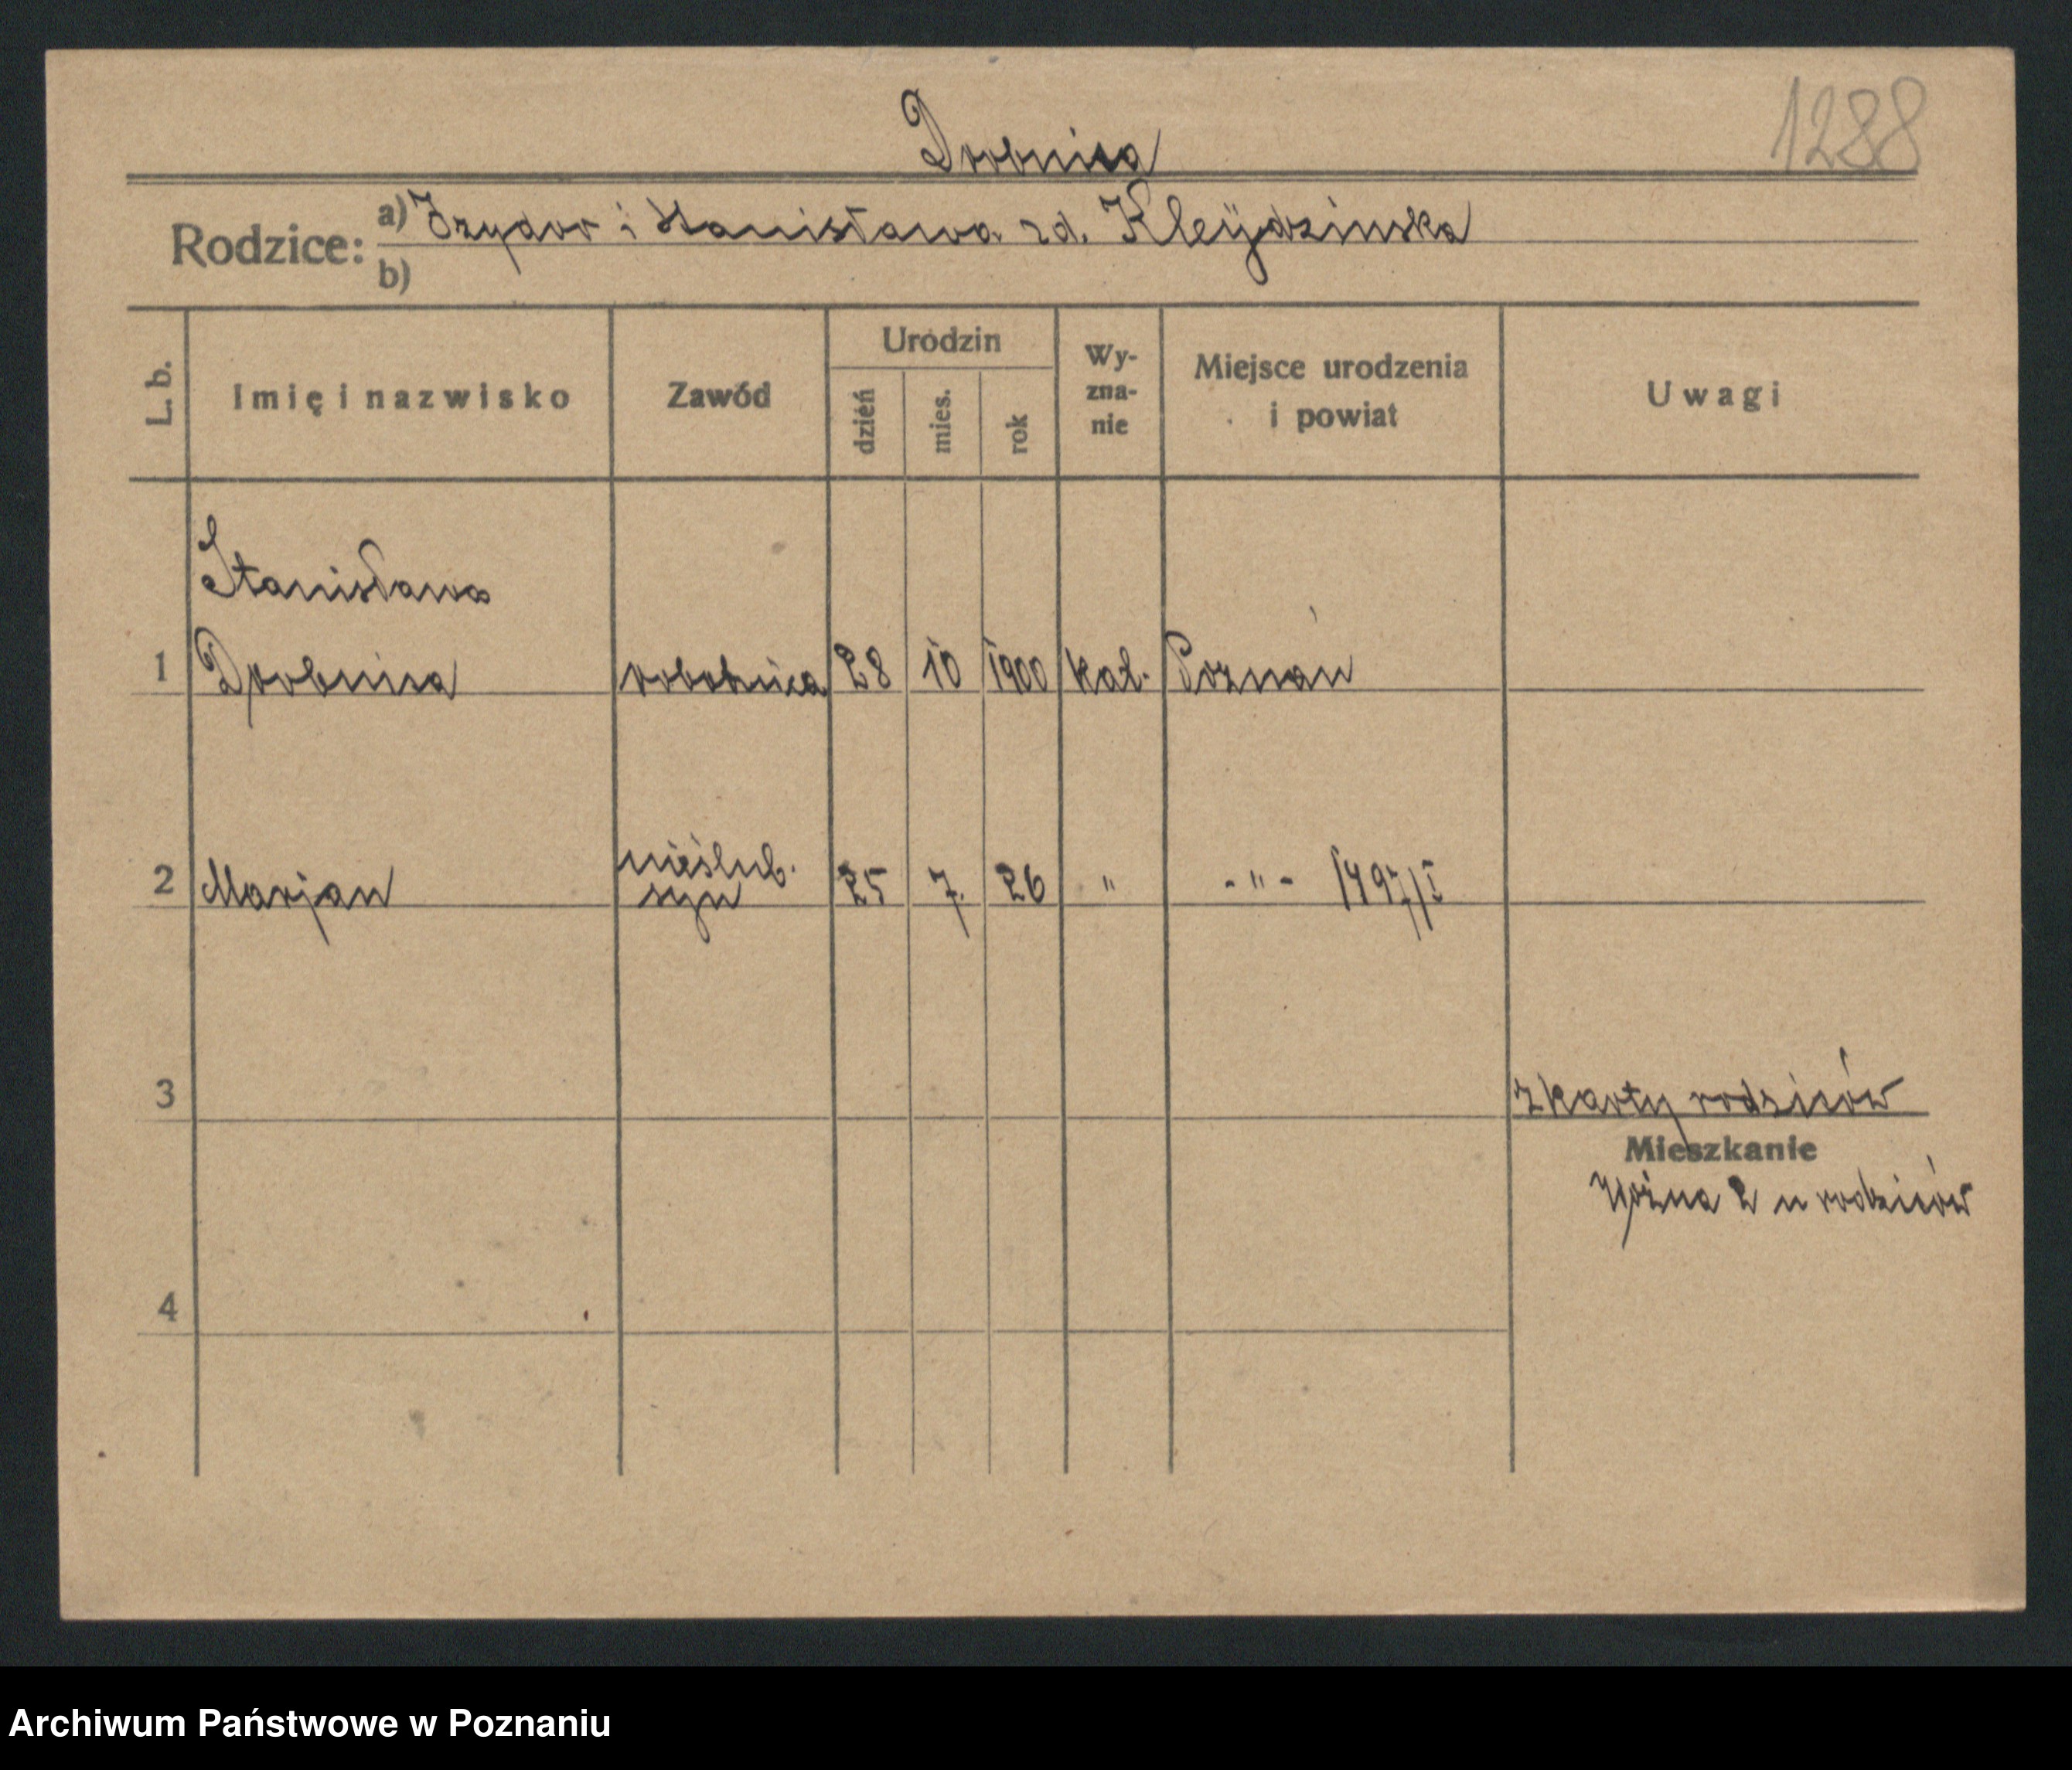 1288
Drobnica
Rodzice: a) Izydor i Stanisława zd. Kleydzinska
b)
L. b. Imię i nazwisko Zawód Urodzin dzień mies. rok Wy-zna-nie Miejsce urodzenia i powiat Uwagi
Stanisława
1 Drobnica robotnica 28 10 1900 kat. Poznań
nieślub.
2 Marjan syn 25 7. 26 " - " - 1497/I
3 z karty rodziców
Mieszkanie
Woźna 2 u rodziców
4
Archiwum Państwowe w Poznaniu